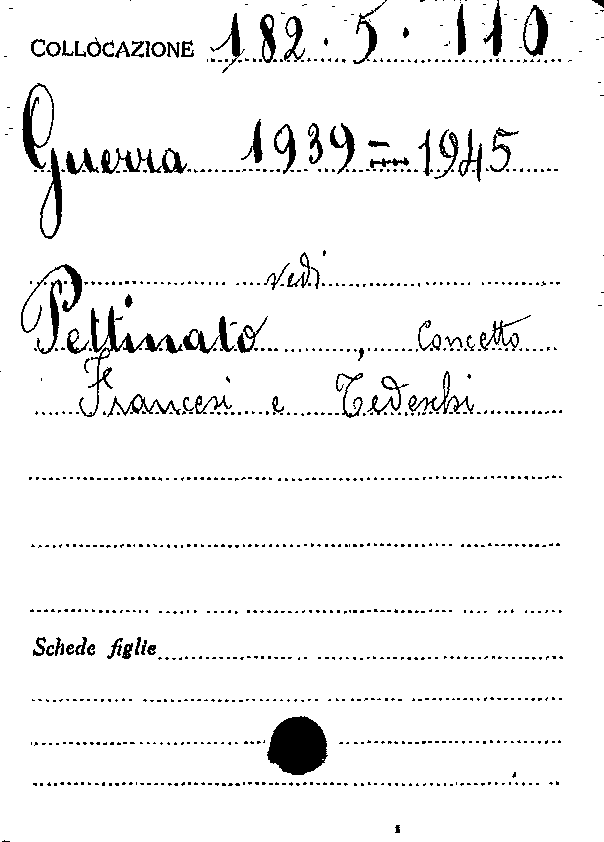 COLLOCAZIONE 182.5.110
Guerra 1939=1945
vedi
Pettinato, Concetto
Francesi e Tedeschi
Schede figlie
1